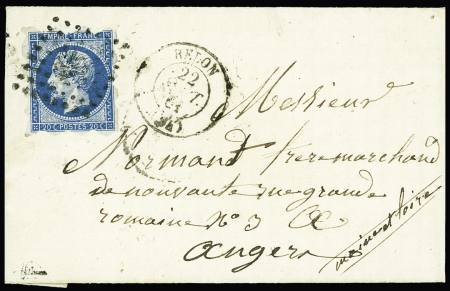 EMPIRE FRANC
20 C POSTES 20 C
REDON
22
Messieur
Normand frere marchand
de nouvauté rue grande
romaine N° 3 A
Angers
maine et loire